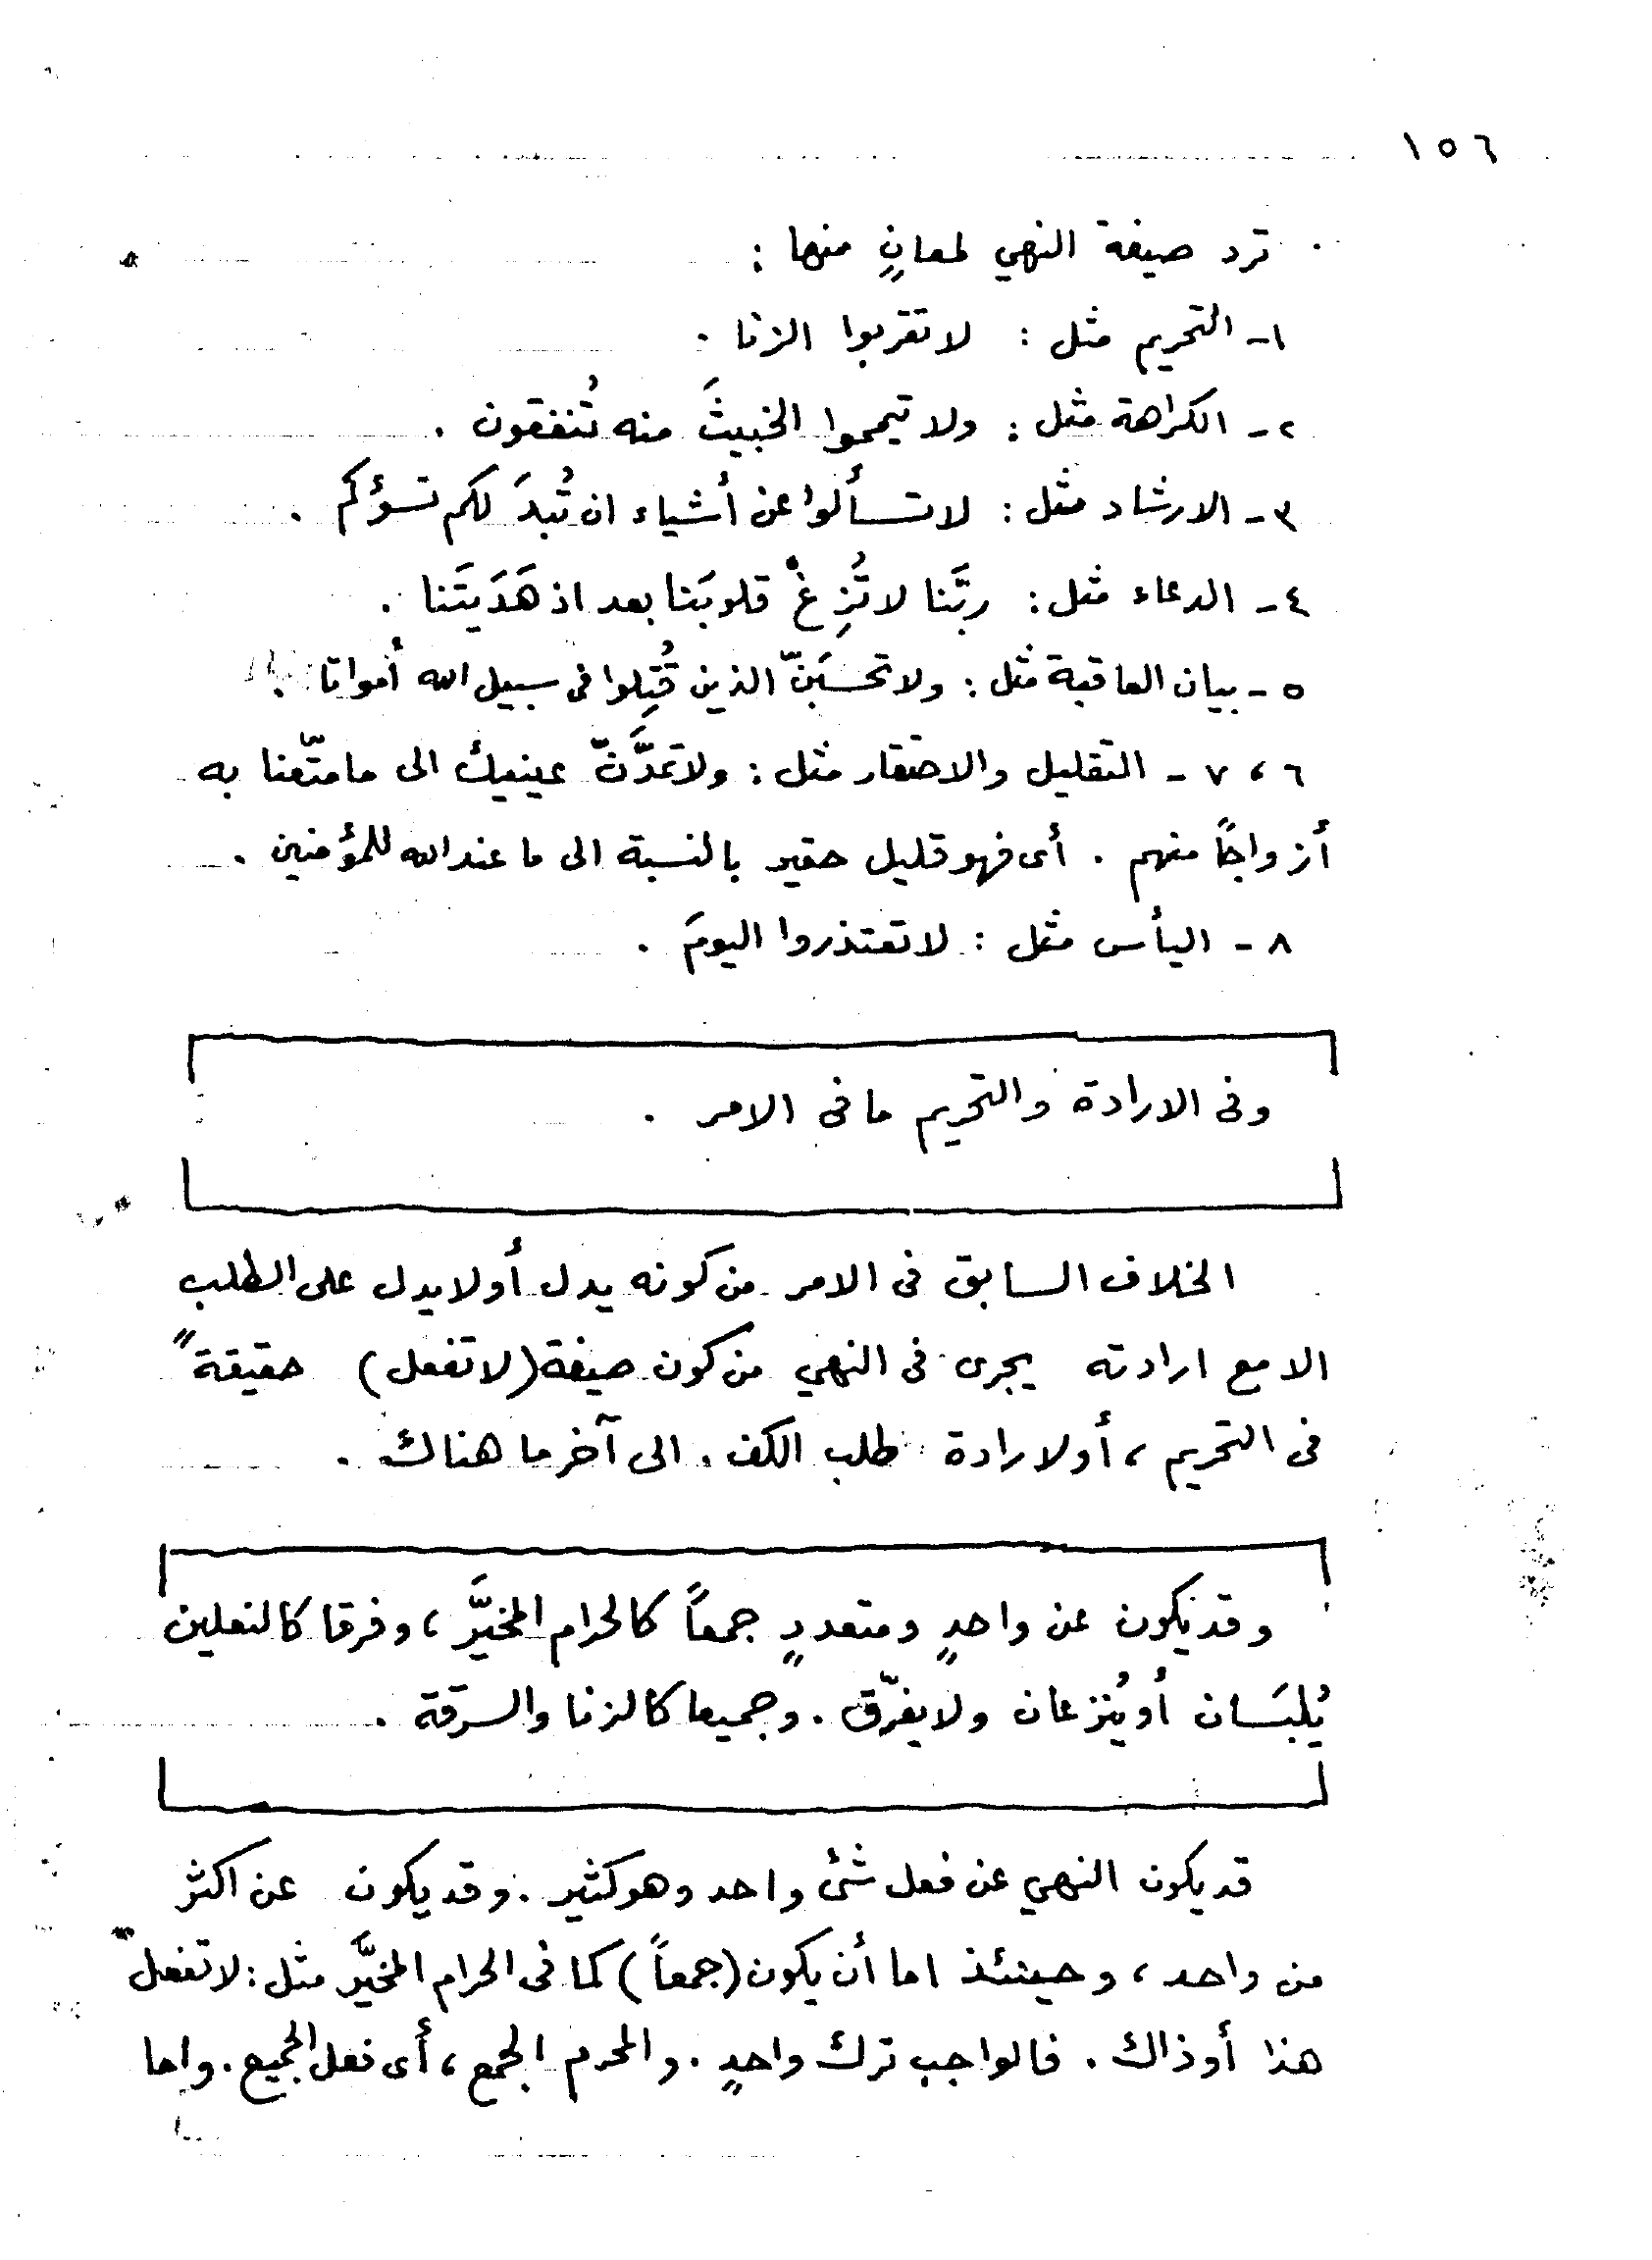 ١٥٦
ترد صيغة النهي لمعانٍ منها :
١- التحريم مثل : لا تقربوا الزنا .
٢- الكراهة مثل : ولا تيمموا الخبيثَ منه تُنفقون .
٣- الارشاد مثل : لا تسألوا عن أشياء ان تُبدَ لكم تسؤكم .
٤- الدعاء مثل : ربَّنا لا تُزِغْ قلوبَنا بعد اذ هَدَيتَنا .
٥- بيان العاقبة مثل : ولا تحسَبَنّ الذين قُتِلوا فى سبيل الله أمواتا .
٦ ، ٧ - التقليل والاحتقار مثل : ولا تمُدَّنّ عينيك الى ما متّعنا به
أزواجًا منهم . أى فهو قليل حقير بالنسبة الى ما عند الله للمؤمنين .
٨- اليأس مثل : لا تعتذروا اليومَ .
وفى الارادة والتحريم ما فى الامر .
الخلاف السابق فى الامر من كونه يدل أو لا يدل على الطلب
الا مع ارادته يجرى فى النهي من كون صيغة (لا تفعل) حقيقةً
فى التحريم ، أو لارادة طلب الكف . الى آخر ما هناك .
وقد يكون عن واحدٍ ومتعددٍ جمعاً كالحرام المخيَّر ، وفرقا كالنعلين
يُلبَسان أو يُنزعان ولا يفرّق . وجميعا كالزنا والسرقة .
قد يكون النهي عن فعل شئ واحد وهو كثير . وقد يكون عن اكثر
من واحد ، وحينئذ اما أن يكون (جمعاً) كما فى الحرام المخيَّر مثل : لا تفعل
هذا أو ذاك . فالواجب ترك واحدٍ . والمحرم الجمع ، أى فعل الجميع . واما